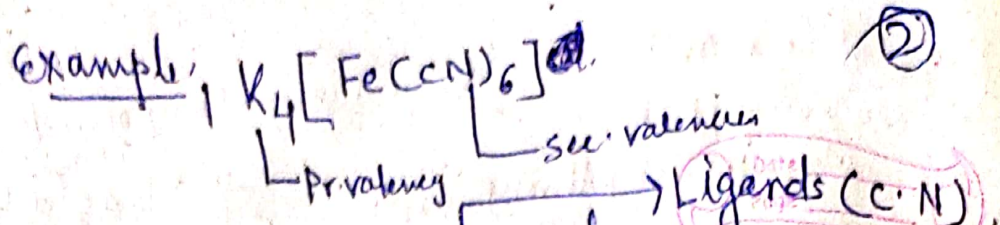 Example, K4[Fe(CN)6]
②
Sec. valencies
Pr. valency
Ligands (C.N)